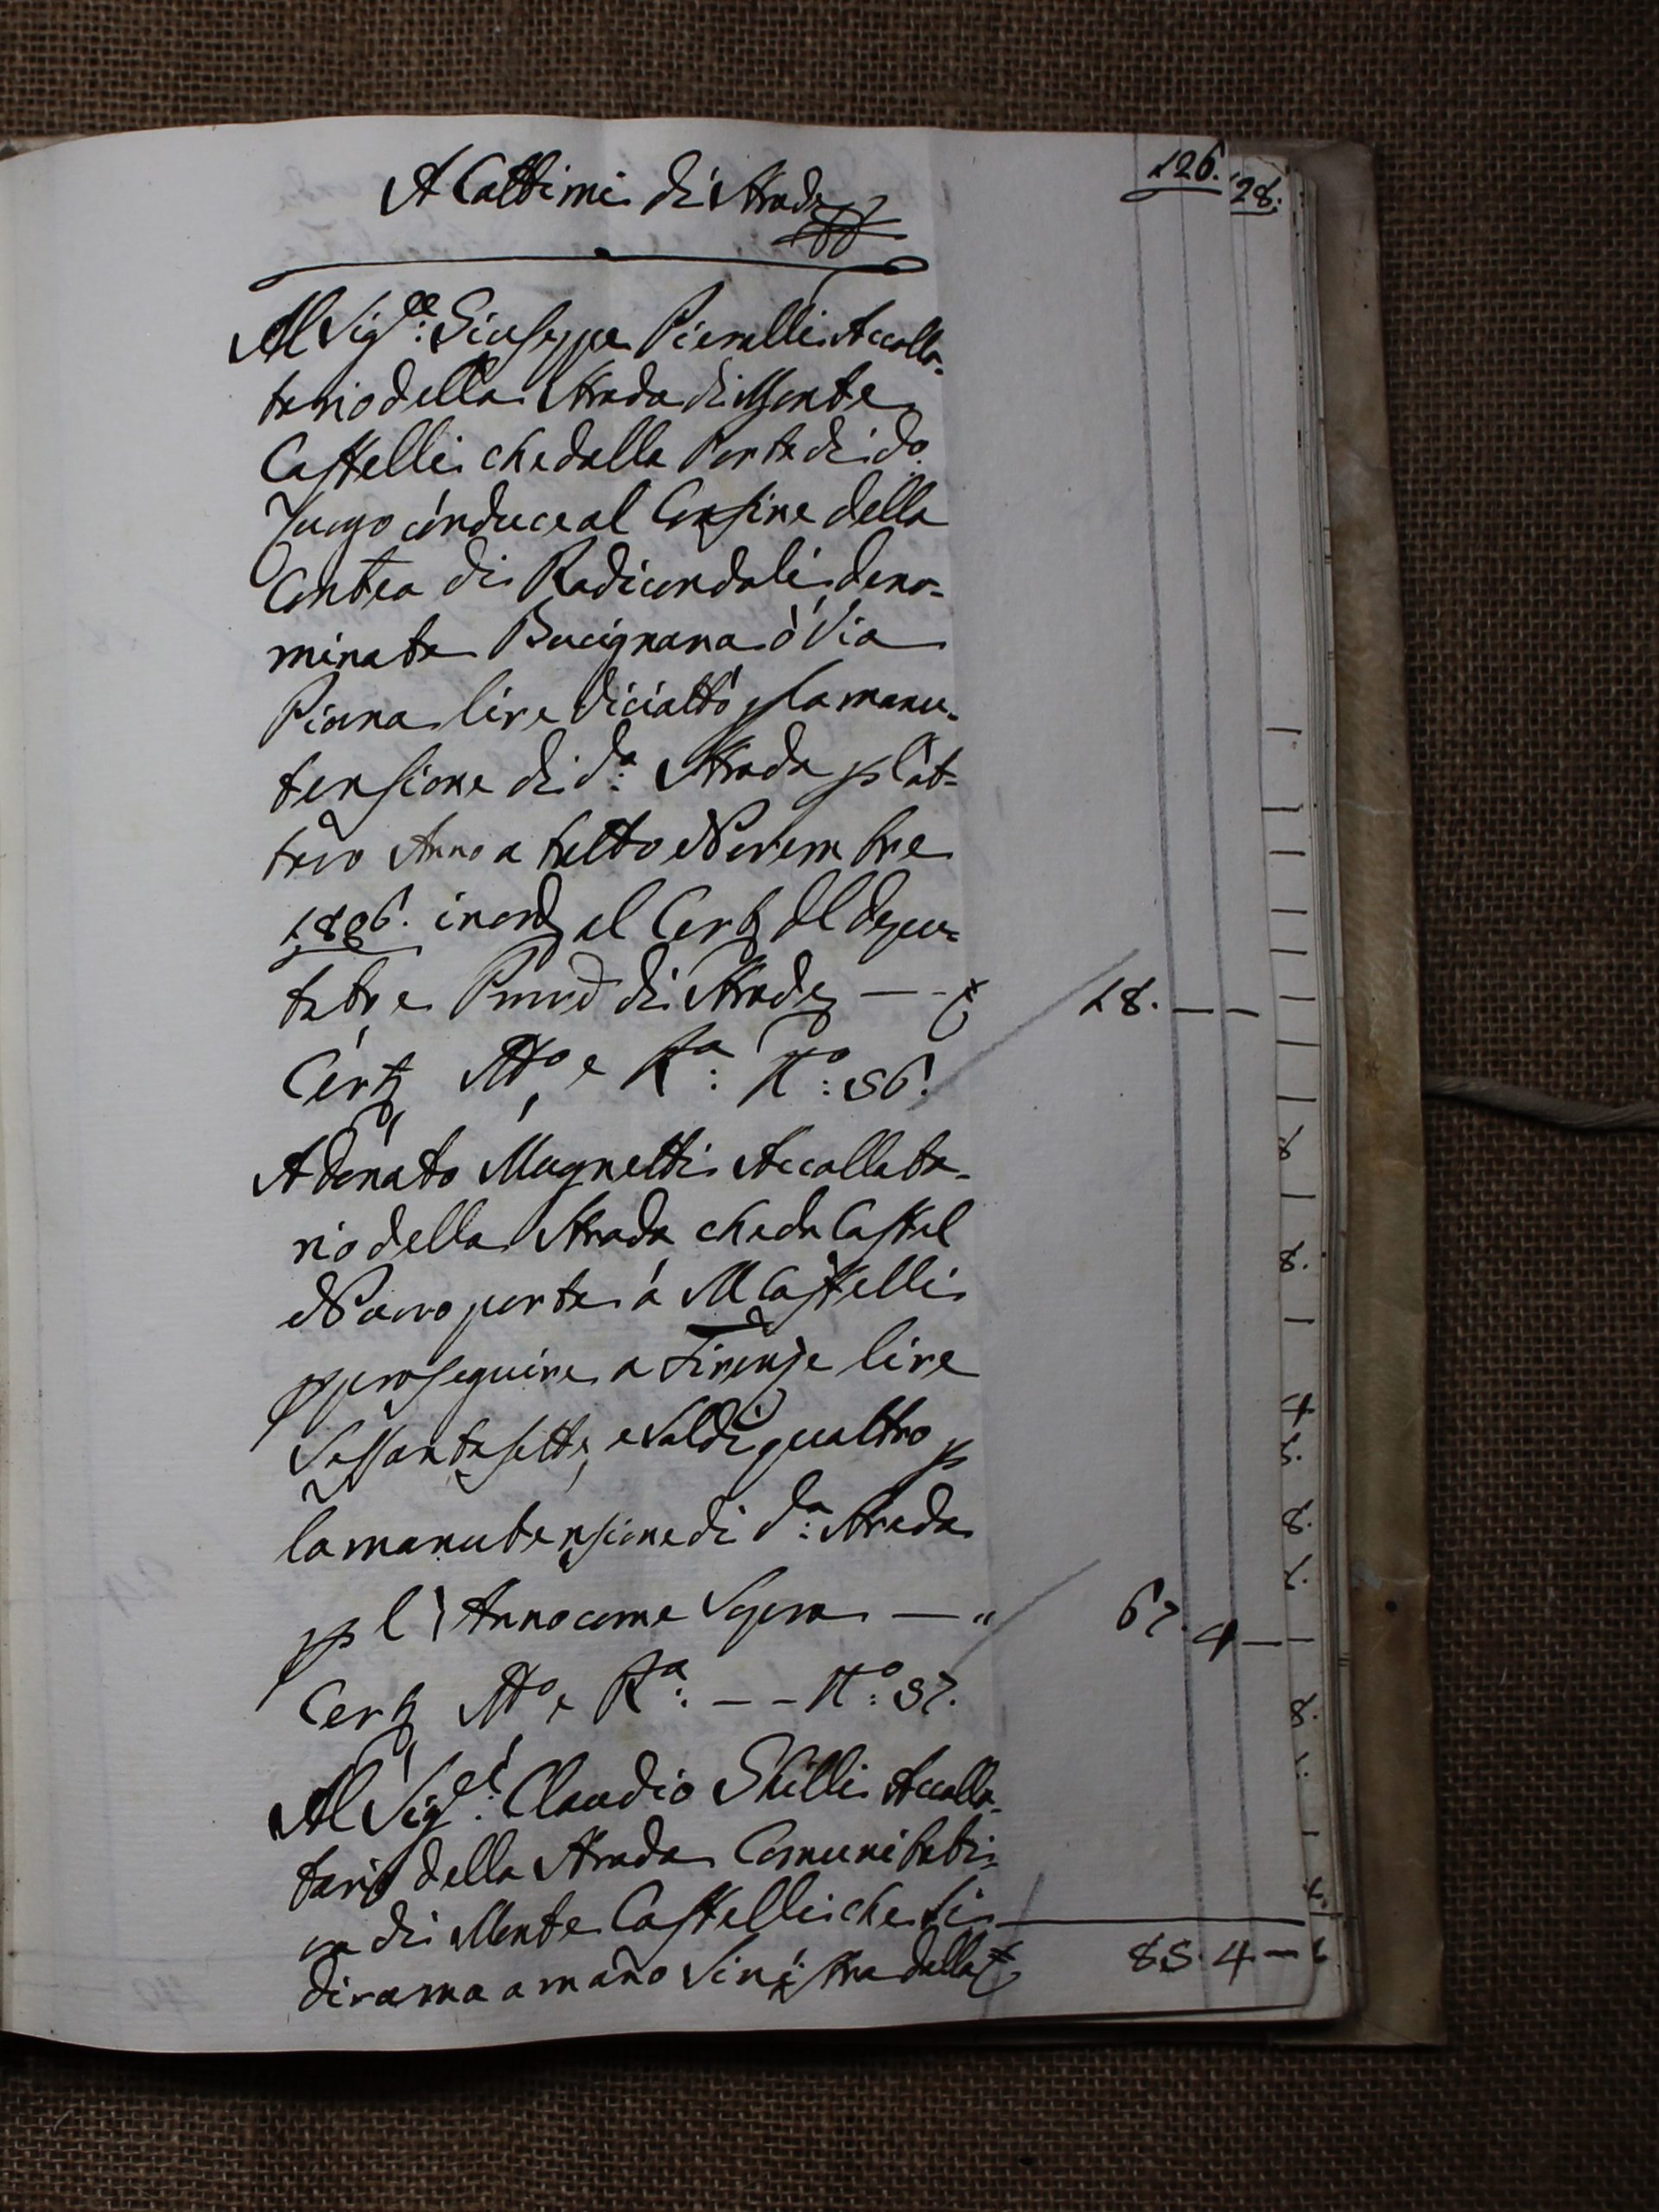 126.
128.
A Cottimi di Strade
Al Sig.re: Giuseppe Pierallli Accolla-
tario della Strada di Monte
Castelli che dalla Porta di do.
Luogo conduce al Confine della
Contea di Radicondoli deno-
minata Bucignana ó Via
Piana lire diciotto p la manu-
tensione di da: Strada p l'at-
tero Anno a tutto Novembre
1806. in ord al Cert del depu-
tato, e Provd di Strade — £ 18. — —
Cert Mto, e Rta: No: 36.
A Donato Magnetti Accollata-
rio della Strada che da Castel
Nuovo porta á M Castelli
p proseguire a Firenze lire
Sessantasette, e Soldi quattro p
la manutensione di da: Strada
p l'Anno come Sopra — " 67. 4 —
Cert Mto, e Rta: — — No: 37.
Al Sigre: Claudio Stilli Accolla-
tario della Strada Comunitati-
va di Monte Castelli che si
dirama a mano Sinistra dalla £ 85. 4 —